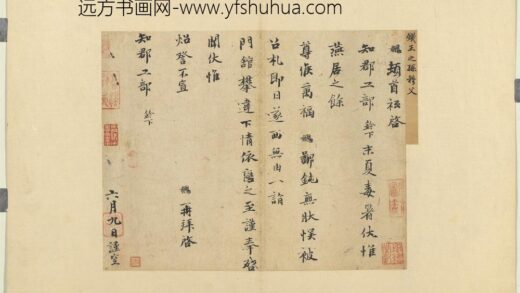 远方书画网-www.yfshuhua.com
頓首拜啓
知郡工部 鈴下末夏毒暑伏惟
燕居之餘
尊候萬福 鄙鈍無狀誤被
召札即日遂西無由一詣
門館攀違下情依戀之至謹奉啓
聞伏惟
炤詧不宣
再拜啓
知郡工部 鈴下
六月九日謹空